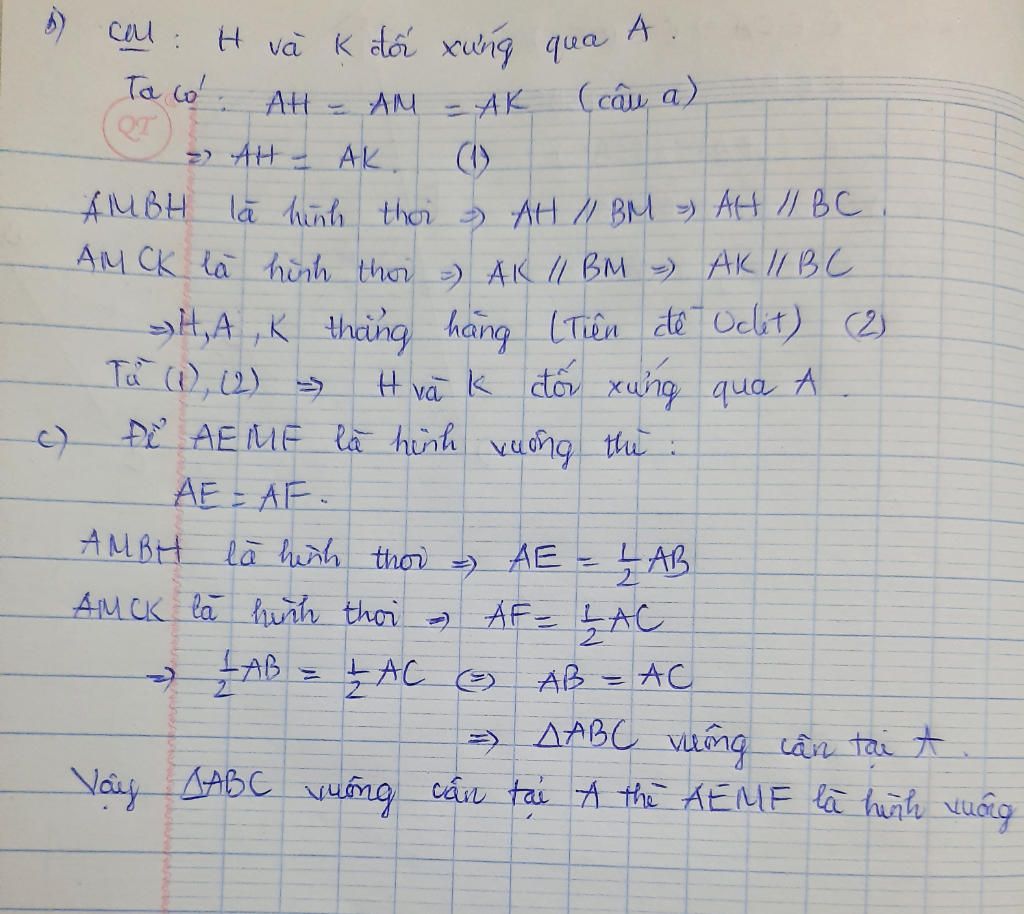 b) CM : H và K đối xứng qua A.
Ta có : AH = AM = AK (câu a)
QT
=> AH = AK. (1)
AMBH là hình thoi => AH // BM => AH // BC.
AMCK là hình thoi => AK // BM => AK // BC
=> H, A, K thẳng hàng (Tiên đề Ơclit) (2)
Từ (1), (2) => H và K đối xứng qua A.
c) Để AEMF là hình vuông thì :
AE = AF.
AMBH là hình thoi => AE = 1/2 AB
AMCK là hình thoi => AF = 1/2 AC
=> 1/2 AB = 1/2 AC <=> AB = AC
=> ΔABC vuông cân tại A.
Vậy ΔABC vuông cân tại A thì AEMF là hình vuông